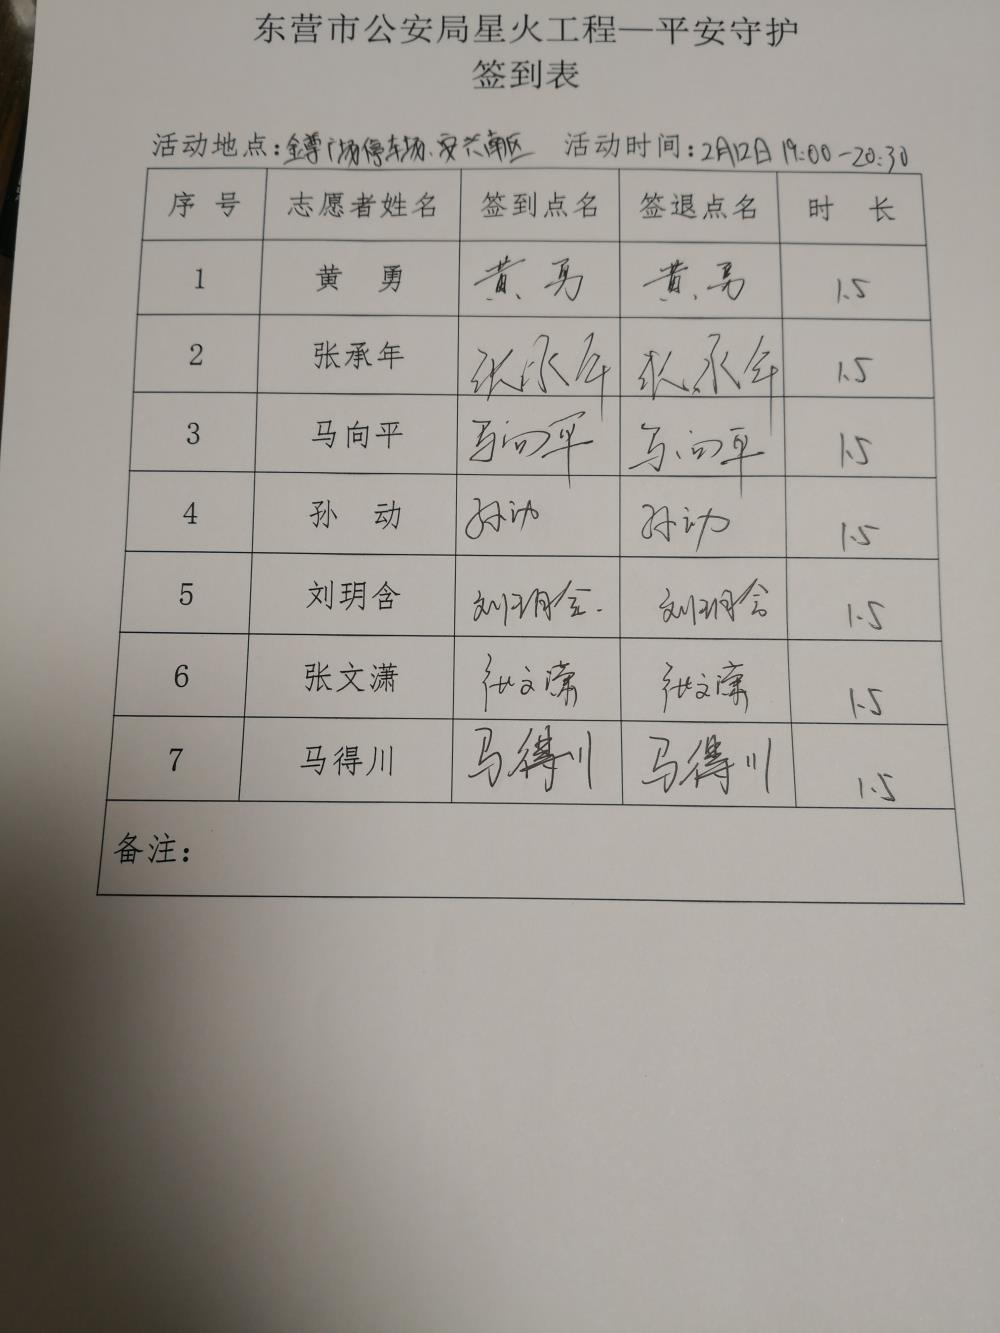 东营市公安局星火工程—平安守护
签到表
活动地点:金尊广场停车场、安兴南区 活动时间:2月12日 19:00-20:30
序号 志愿者姓名 签到点名 签退点名 时长
1 黄勇 黄勇 黄勇 1.5
2 张承年 张承年 张承年 1.5
3 马向平 马向平 马向平 1.5
4 孙动 孙动 孙动 1.5
5 刘玥含 刘玥含 刘玥含 1.5
6 张文潇 张文潇 张文潇 1.5
7 马得川 马得川 马得川 1.5
备注: